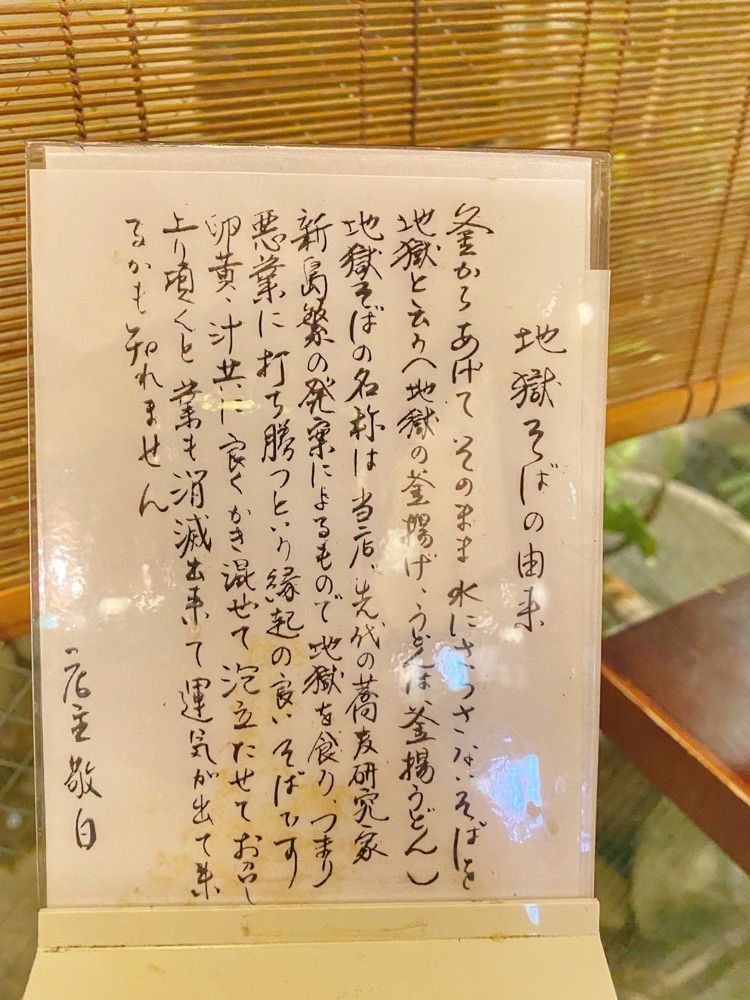 地獄そばの由来
釜からあげて そのまま 水にさらさないそばを
地獄と云う(地獄の釜揚げ、うどんは、釜揚うどん)
地獄そばの名称は 当店、先代の蕎麦研究家
新島繁の発案によるもので地獄を食う、つまり
悪業に打ち勝つという縁起の良いそばです
卵黄、汁共に良くかき混ぜて泡立たせてお召し
上り頂くと業も消滅出来て運気が出て来
るかも知れません
店主敬白